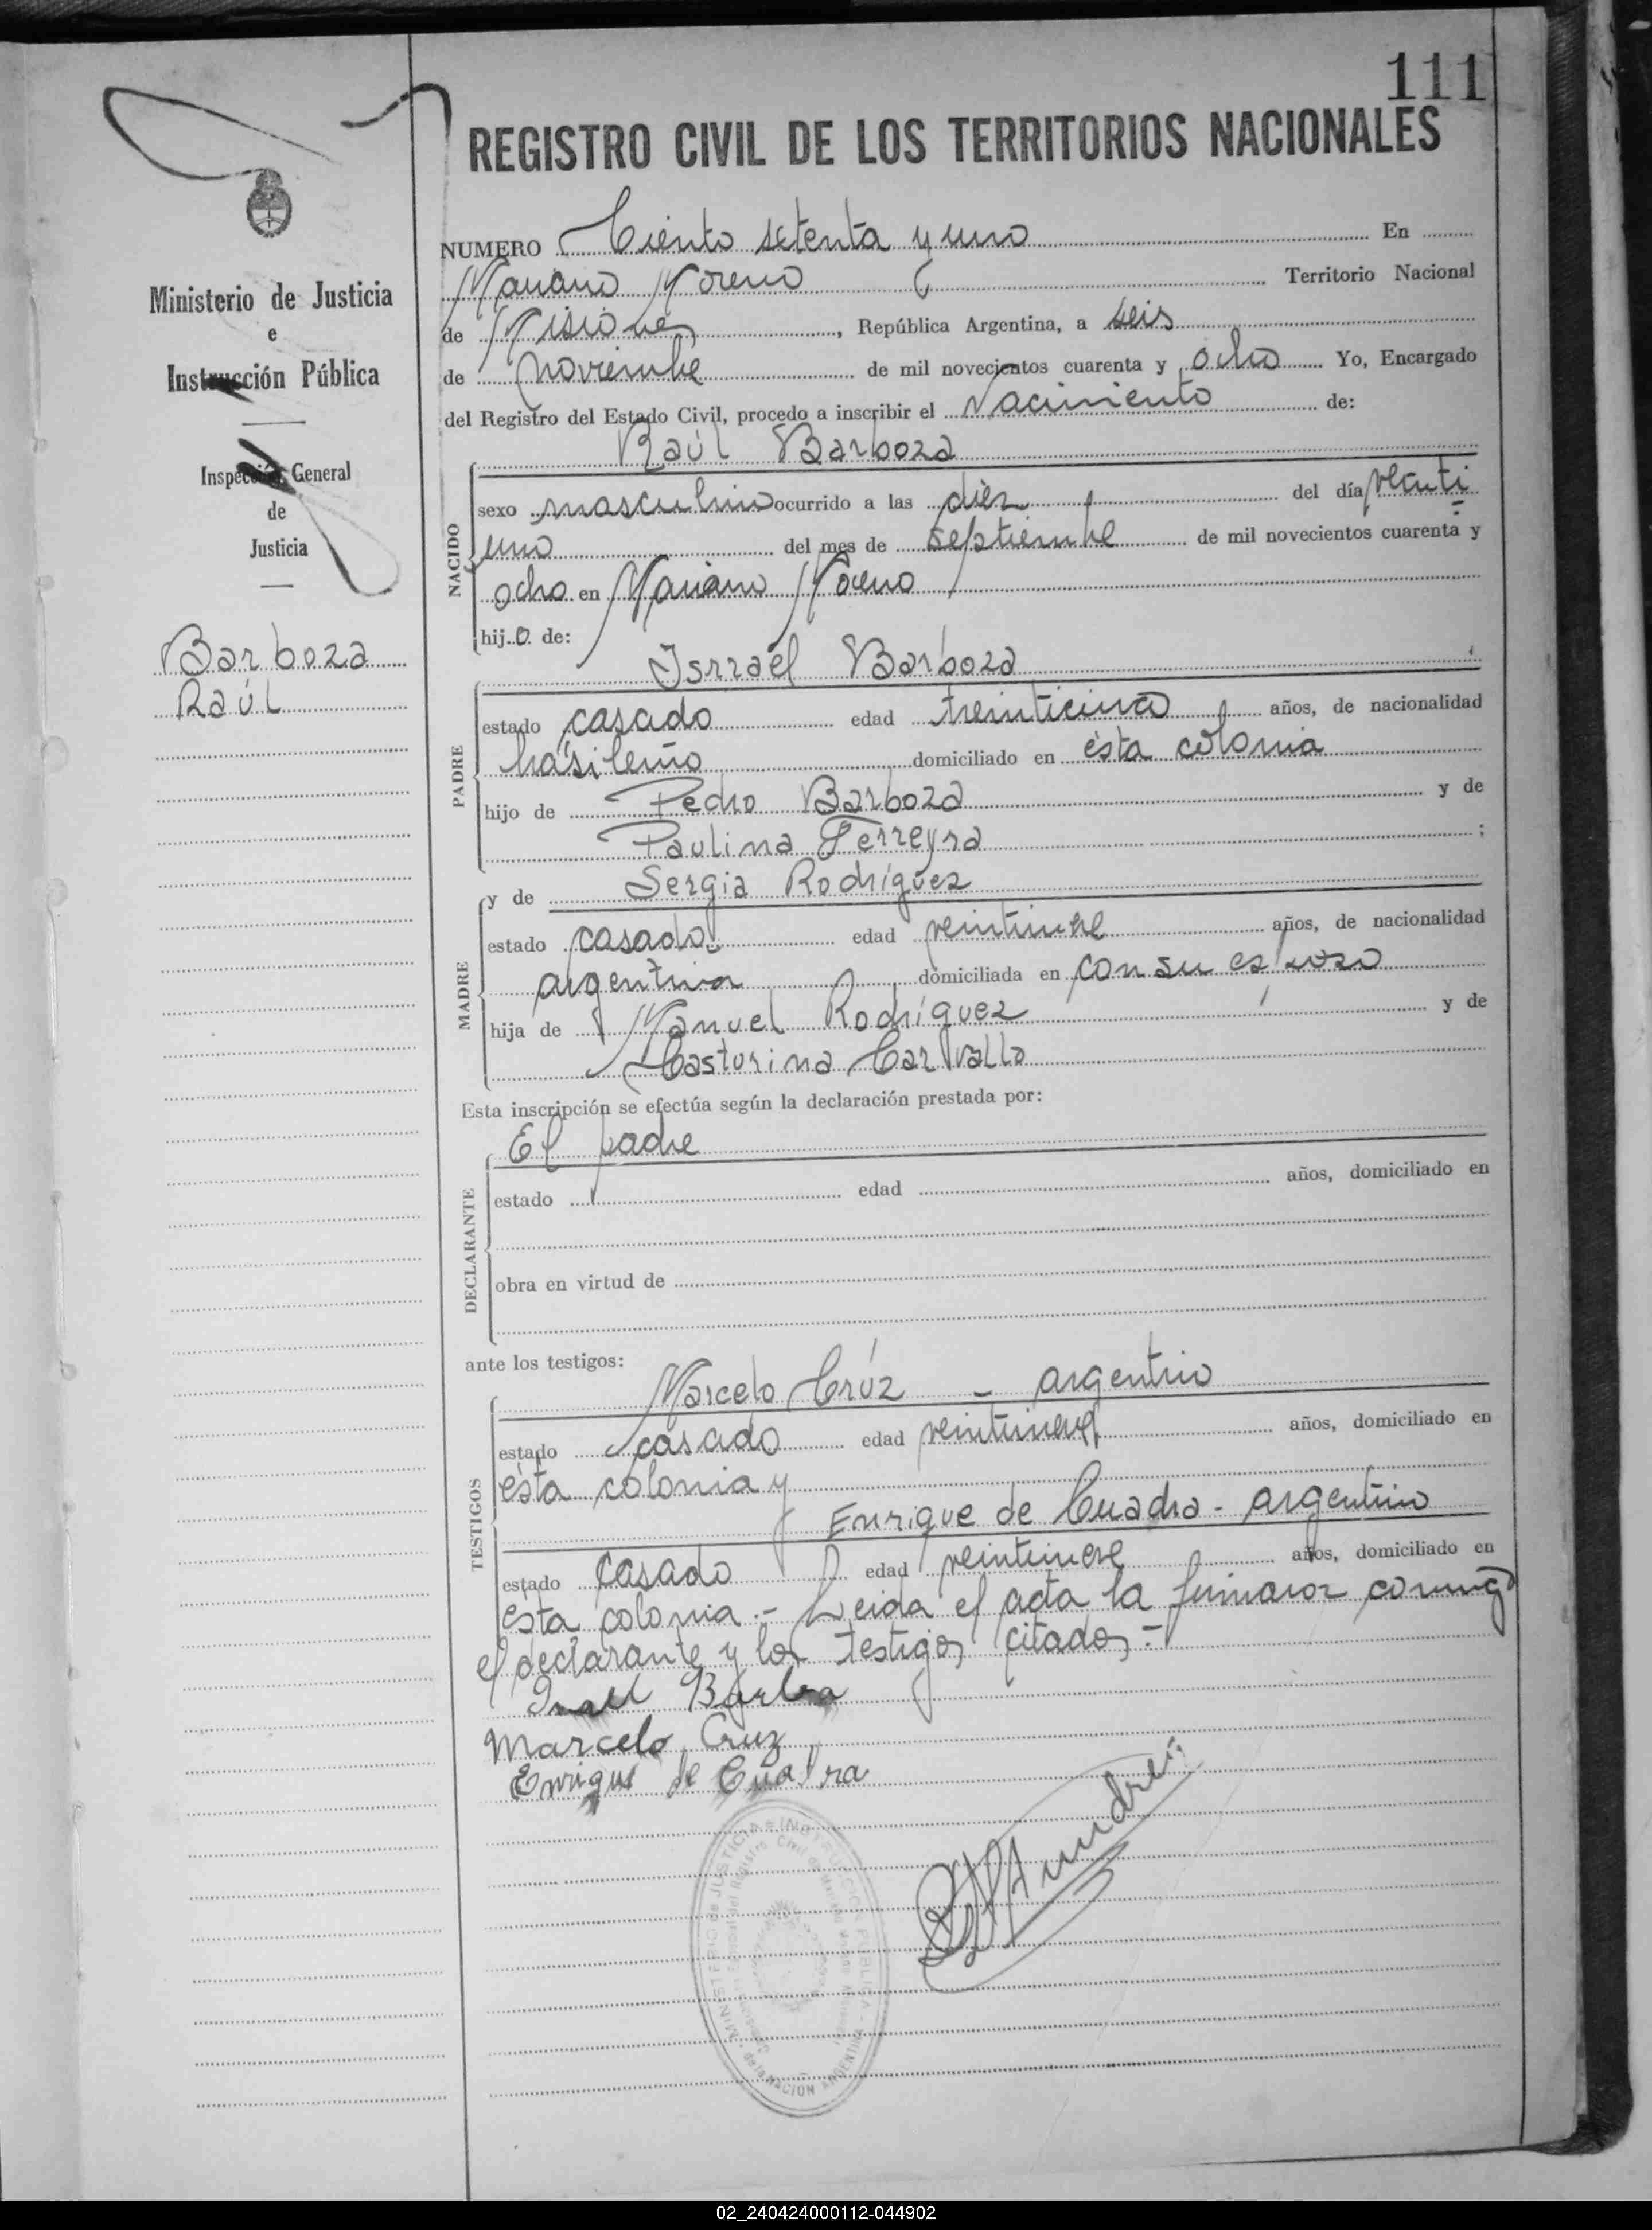 111
REGISTRO CIVIL DE LOS TERRITORIOS NACIONALES
Ministerio de Justicia
e
Instrucción Pública
Inspección General
de
Justicia
Barboza
Raúl
NUMERO Ciento setenta y uno En
Mariano Moreno Territorio Nacional
de Misiones, República Argentina, a seis
de noviembre de mil novecientos cuarenta y ocho Yo, Encargado
del Registro del Estado Civil, procedo a inscribir el Nacimiento de:
Raúl Barboza
NACIDO
sexo masculino ocurrido a las diez del día veinti
uno del mes de septiembre de mil novecientos cuarenta y
ocho en Mariano Moreno
hijo de:
Isrrael Barboza
PADRE
estado casado edad treinticinco años, de nacionalidad
brasileño domiciliado en ésta colonia
hijo de Pedro Barboza y de
Paulina Ferreyra ;
y de Sergia Rodríguez
MADRE
estado casada edad veintinueve años, de nacionalidad
argentina domiciliada en con su esposo
hija de Manuel Rodríguez y de
Castorina Carvallo
Esta inscripción se efectúa según la declaración prestada por:
El padre
DECLARANTE
estado edad años, domiciliado en
obra en virtud de
ante los testigos:
Marcelo Crúz - argentino
TESTIGOS
estado casado edad veintinueve años, domiciliado en
ésta colonia y
Enrique de Cuadra - argentino
estado casado edad veintinueve años, domiciliado en
ésta colonia.- Leída el acta la firmaron conmigo
el declarante y los testigos citados.-
Israel Barboza
Marcelo Cruz
Enrique de Cuadra
MINISTERIO de JUSTICIA e INSTRUCCION PUBLICA
de la NACION ARGENTINA
02_240424000112-044902